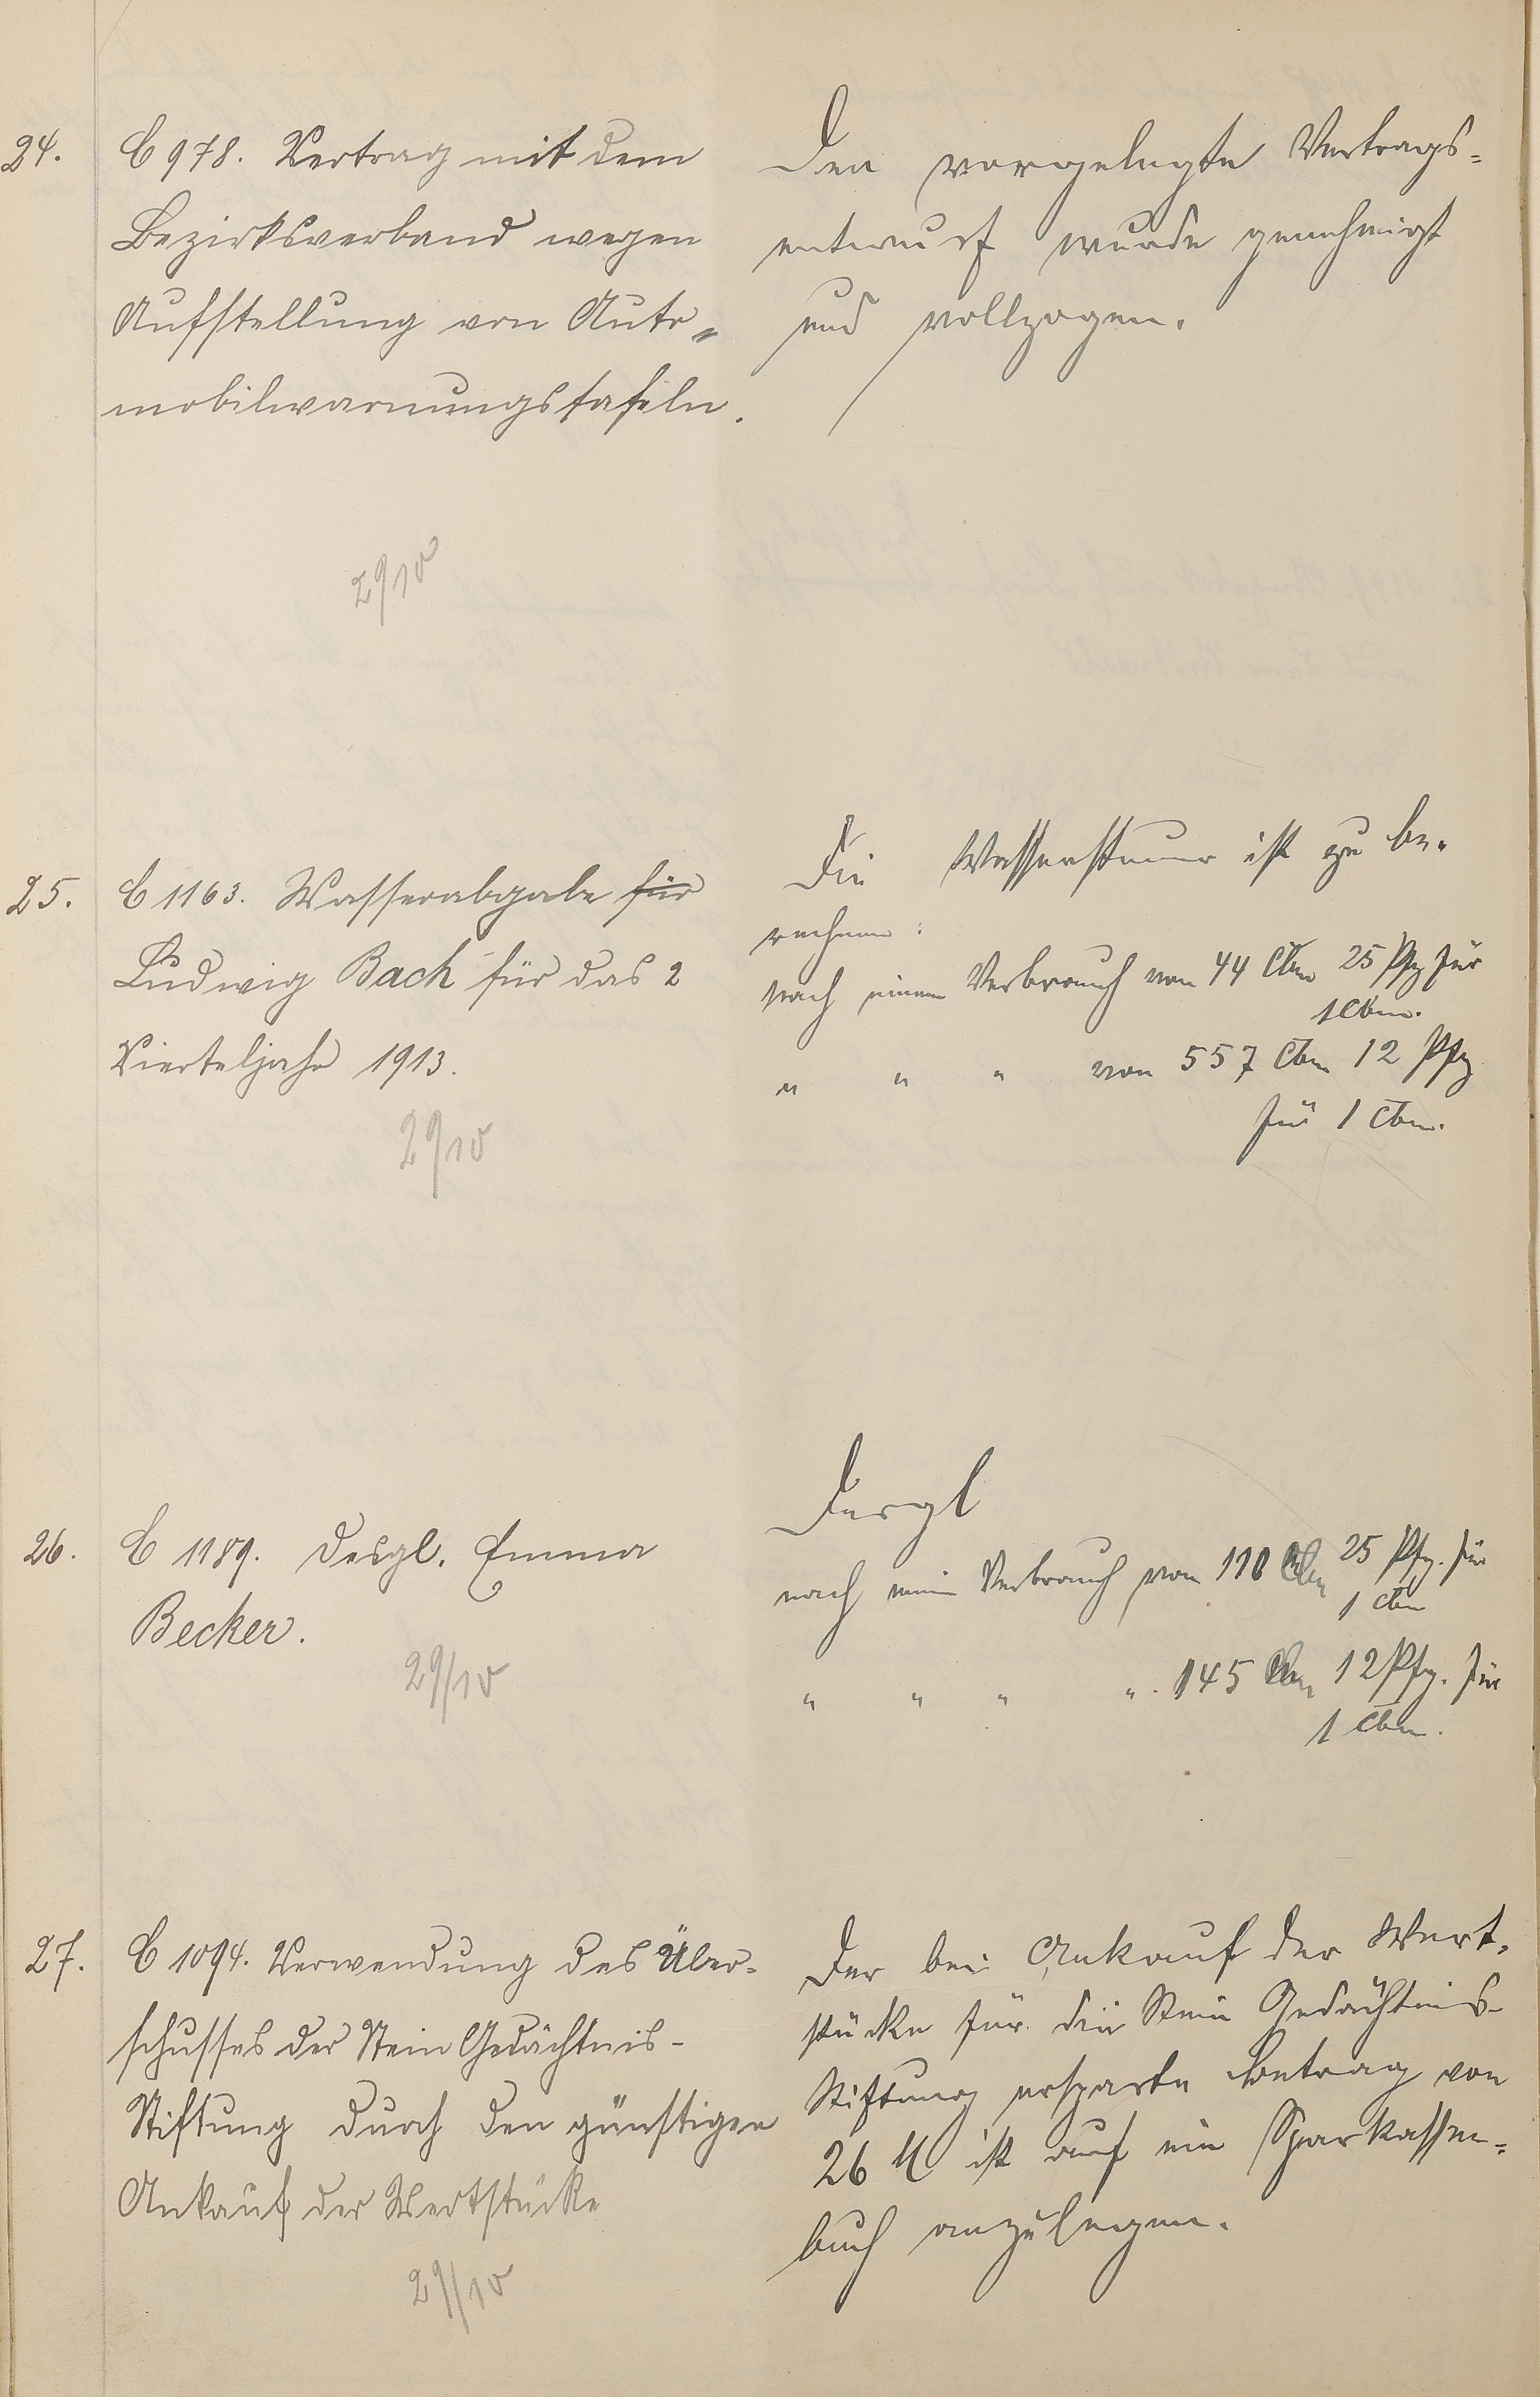 24.
C 978. Vertrag mit dem
Bezirksverband wegen
Aufstellung von Auto=
mobilwarnungstafeln.
29/10
Der vorgelegte Vertrags=
entwurf wurde genehmigt
und vollzogen.
25.
C 1163. Wasserabgabe für
Ludwig Bach für das 2
Vierteljahr 1913.
29/10
Die Wassersteuer ist zu be-
rechnen:
nach einem Verbrauch von 44 cbm 25 Pfg für
1 cbm.
" " " von 557 cbm 12 Pfg
für 1 cbm.
26.
C 1189. Desgl. Emma
Becker.
29/10
Desgl
nach einem Verbrauch von 110 cbm 25 Pfg. für
1 cbm
" " " ". 145 cbm 12 Pfg. für
1 cbm.
27.
C 1094. Verwendung des Über-
schusses der Stein Gedächtnis-
Stiftung durch den günstigen
Ankauf der Wertstücke
29/10
Der bei Ankauf der Wert-
stücke für die Stein Gedächtnis-
Stiftung ersparte Betrag von
26 M ist auf ein Sparkassen=
buch anzulegen.